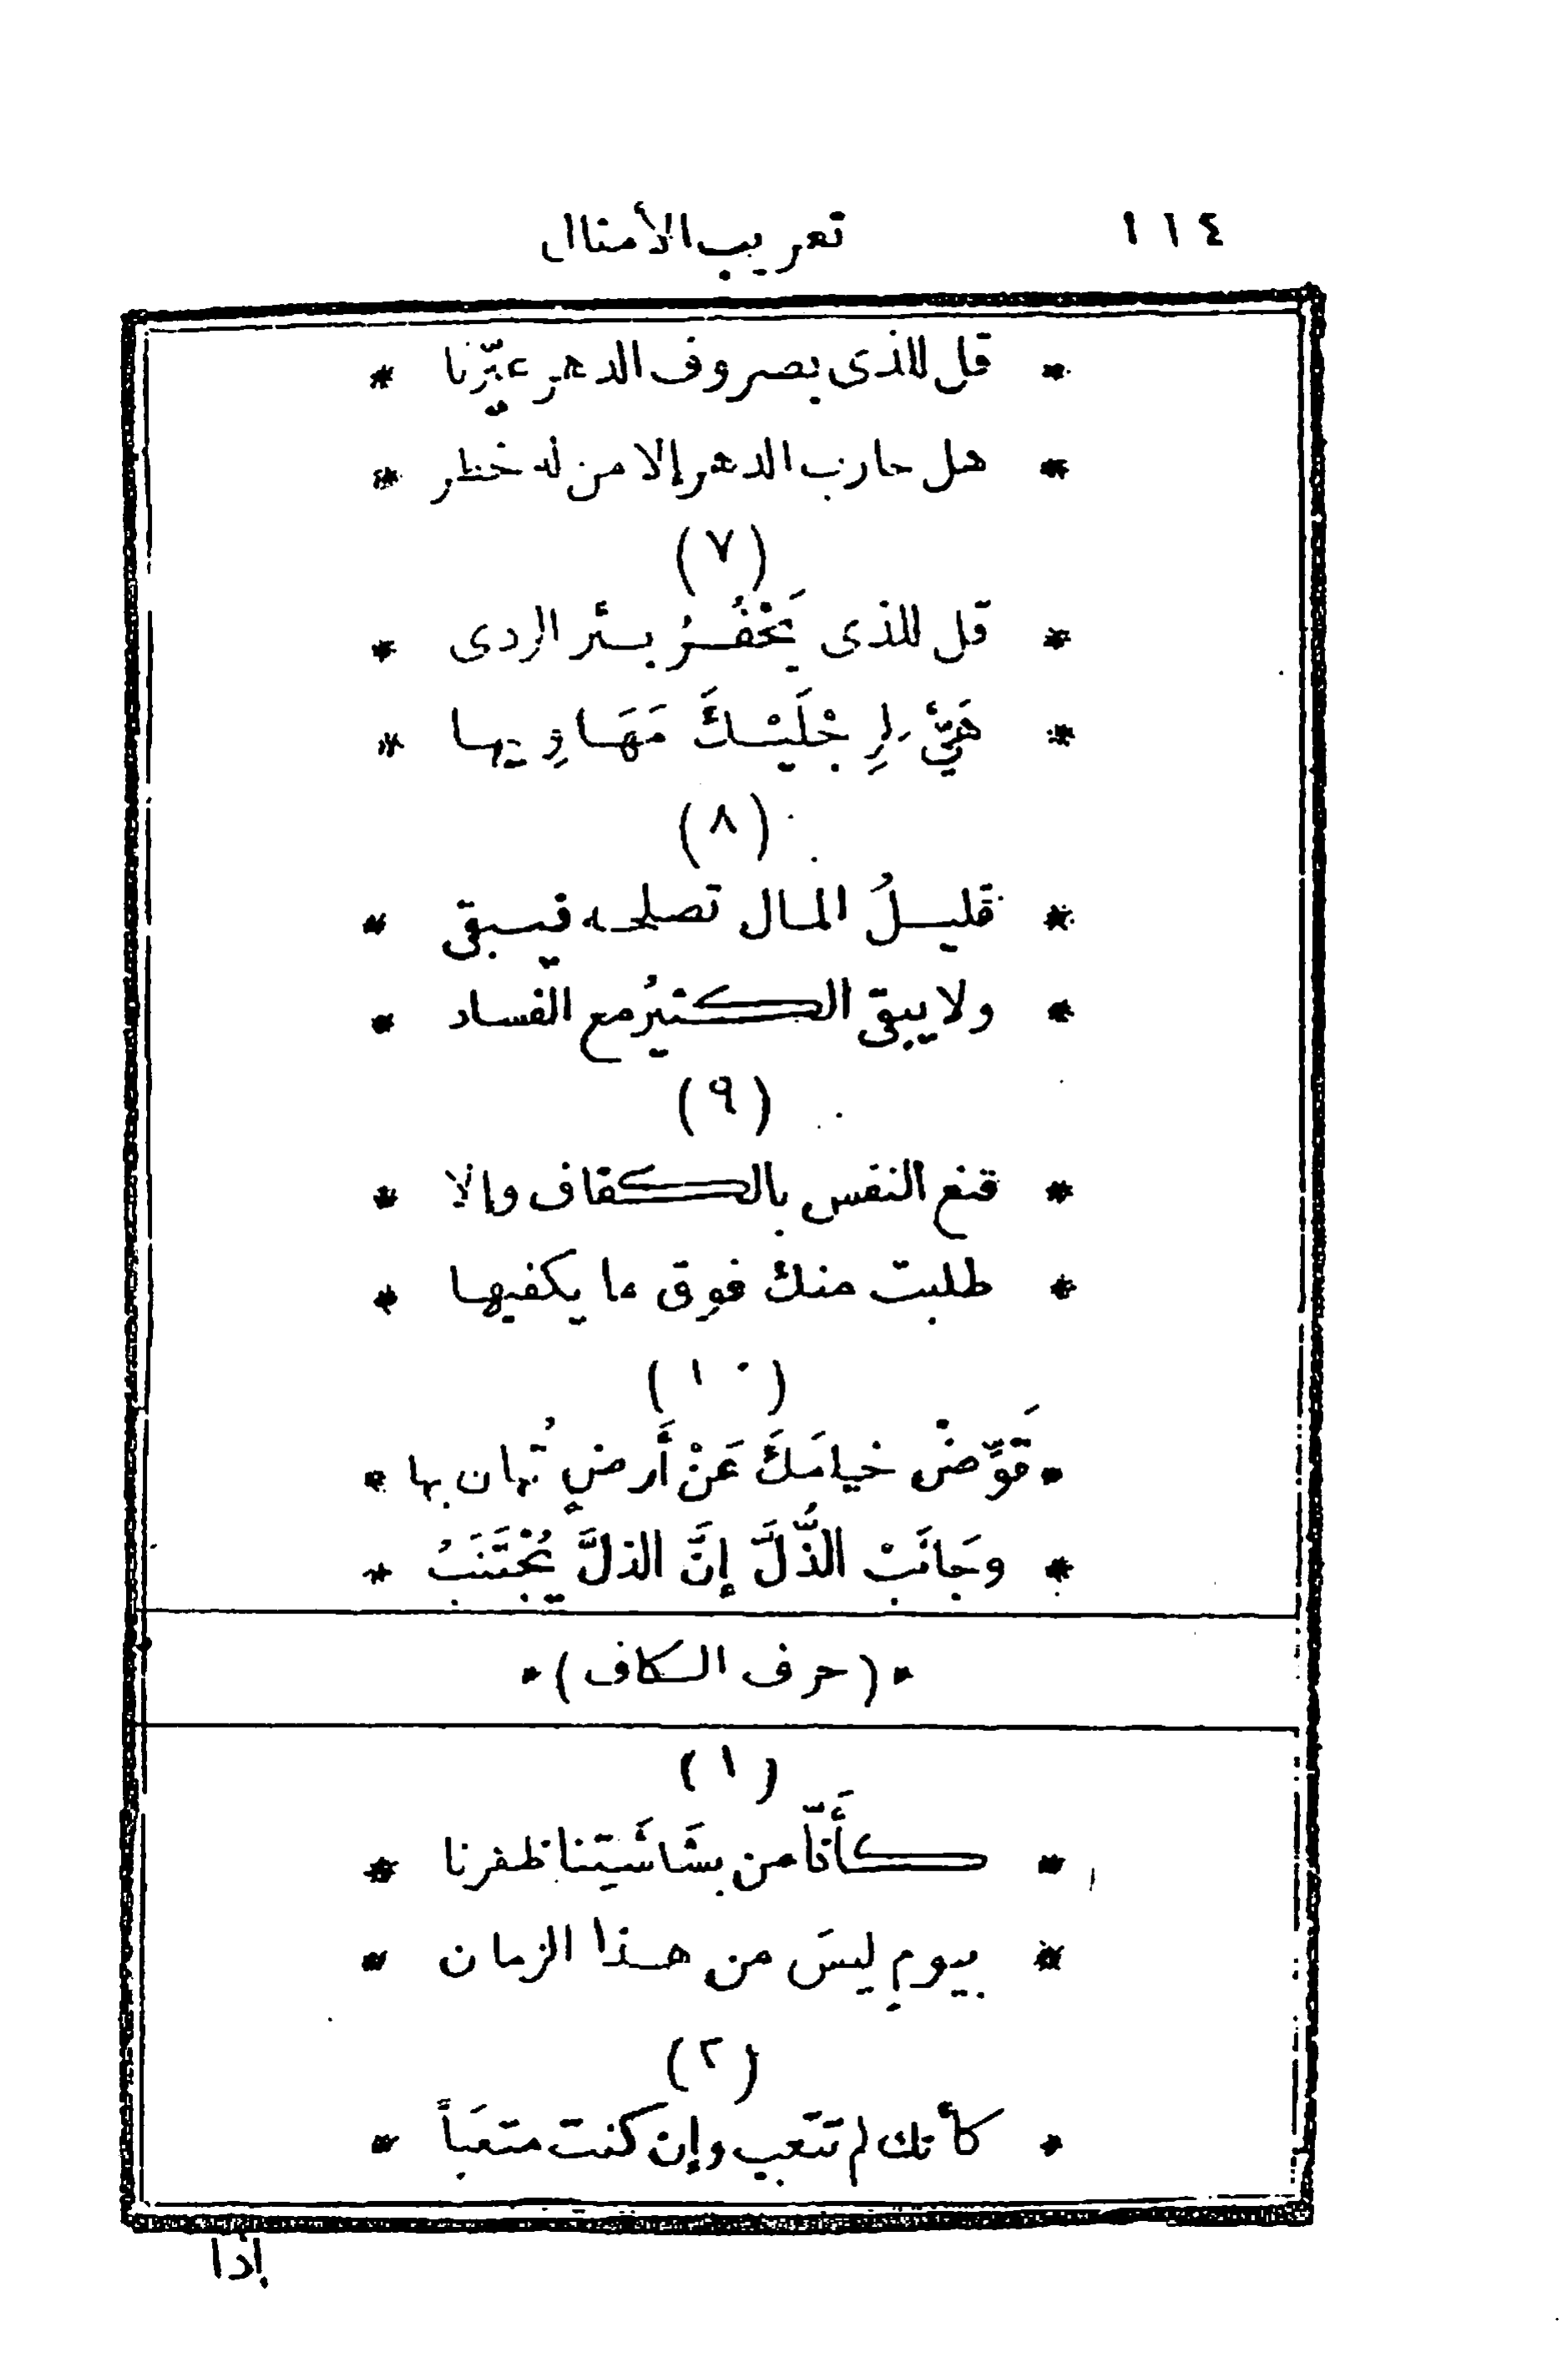 ١١٤ تعريب الأمثال
* قل للذى بصروف الدهر عيّرنا *
* هل حارب الدهر إلا من له خطر *
(٧)
* قل للذى يَحْفُرُ بئر الردى *
* هَيِّئْ لِرِجْلَيْكَ مَهَاوِيها *
(٨)
* قليلُ المال تصلحه فيبقى *
* ولا يبقى الكثيرُ مع الفساد *
(٩)
* قنع النفس بالكفاف وإلا *
* طلبت منك فوق ما يكفيها *
(١٠)
* قَوِّضْ خيامَكَ عَنْ أَرضٍ تُهان بها *
* وجَانَبْ الذُّلَّ إنَّ الذلَّ يُجْتَنَبُ *
*( حرف الكاف )*
(١)
* كَأَنّا من بشَاشَتِنا ظفرنا *
* بيومٍ ليسَ من هذا الزمان *
(٢)
* كأنك لم تتعب وإن كنت متعَباً *
إذا